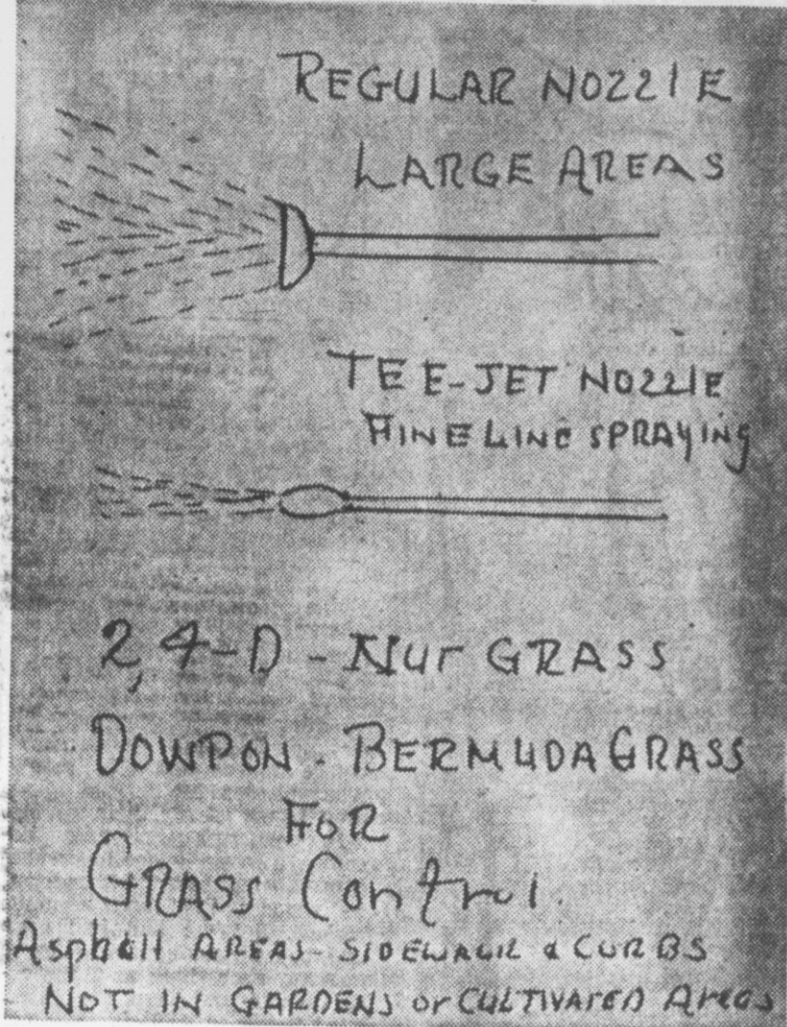 REGULAR NOZZlE
LARGE AREAS
TEE-JET NOZZlE
FINE LINE SPRAYING
2,4-D - NUT GRASS
DOWPON - BERMUDA GRASS
FOR
GRASS Control
Asphalt AREAS - SIDEWALK & CURBS
NOT IN GARDENS or CULTIVATED Areas